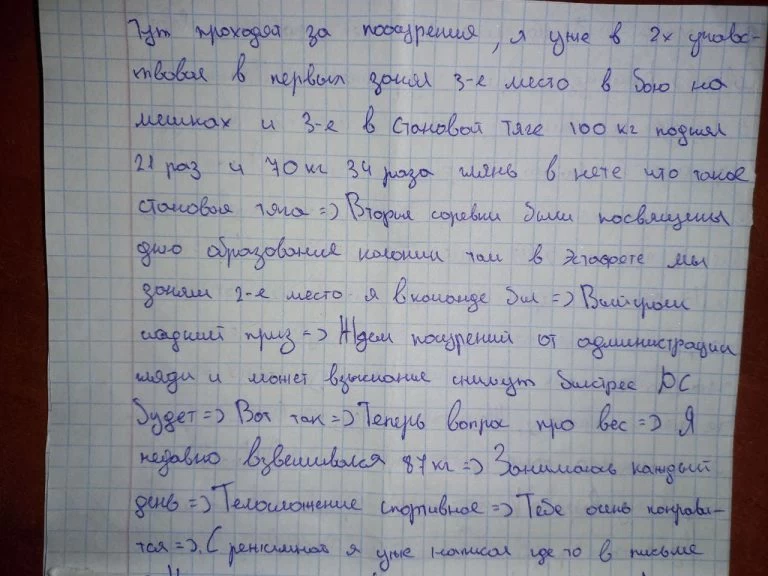 Тут проходят за поощрения, я уже в 2х участво-
твовал в первых занял 3-е место в бою на
мешках и 3-е в становой тяге 100 кг поднял
21 раз и 70 кг 34 раза глянь в нете что такое
становая тяга => Вторые соревы были посвящены
дню образования колонии там в Эстафете мы
заняли 2-е место я в команде был => Выиграли
сладкий приз => Ждем поощрений от администрации
гляди и может взыскание снимут быстрее ДС
будет => Вот так => Теперь вопрос про вес => Я
недавно взвешивался 87 кг => Занимаюсь каждый
день => Телосложение спортивное => Тебе очень понрави-
тся =>. С режимной я уже написал где то в письме